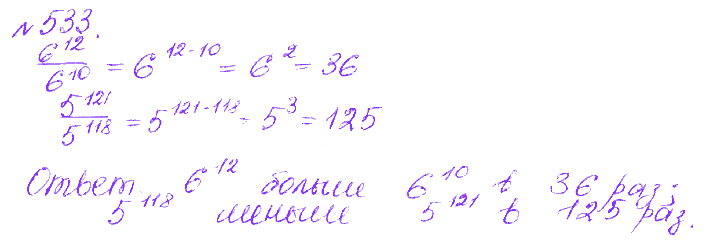 № 533.
6^12/6^10 = 6^12-10 = 6^2 = 36
5^121/5^118 = 5^121-118 = 5^3 = 125
Ответ 6^12 больше 6^10 в 36 раз;
5^118 меньше 5^121 в 125 раз.